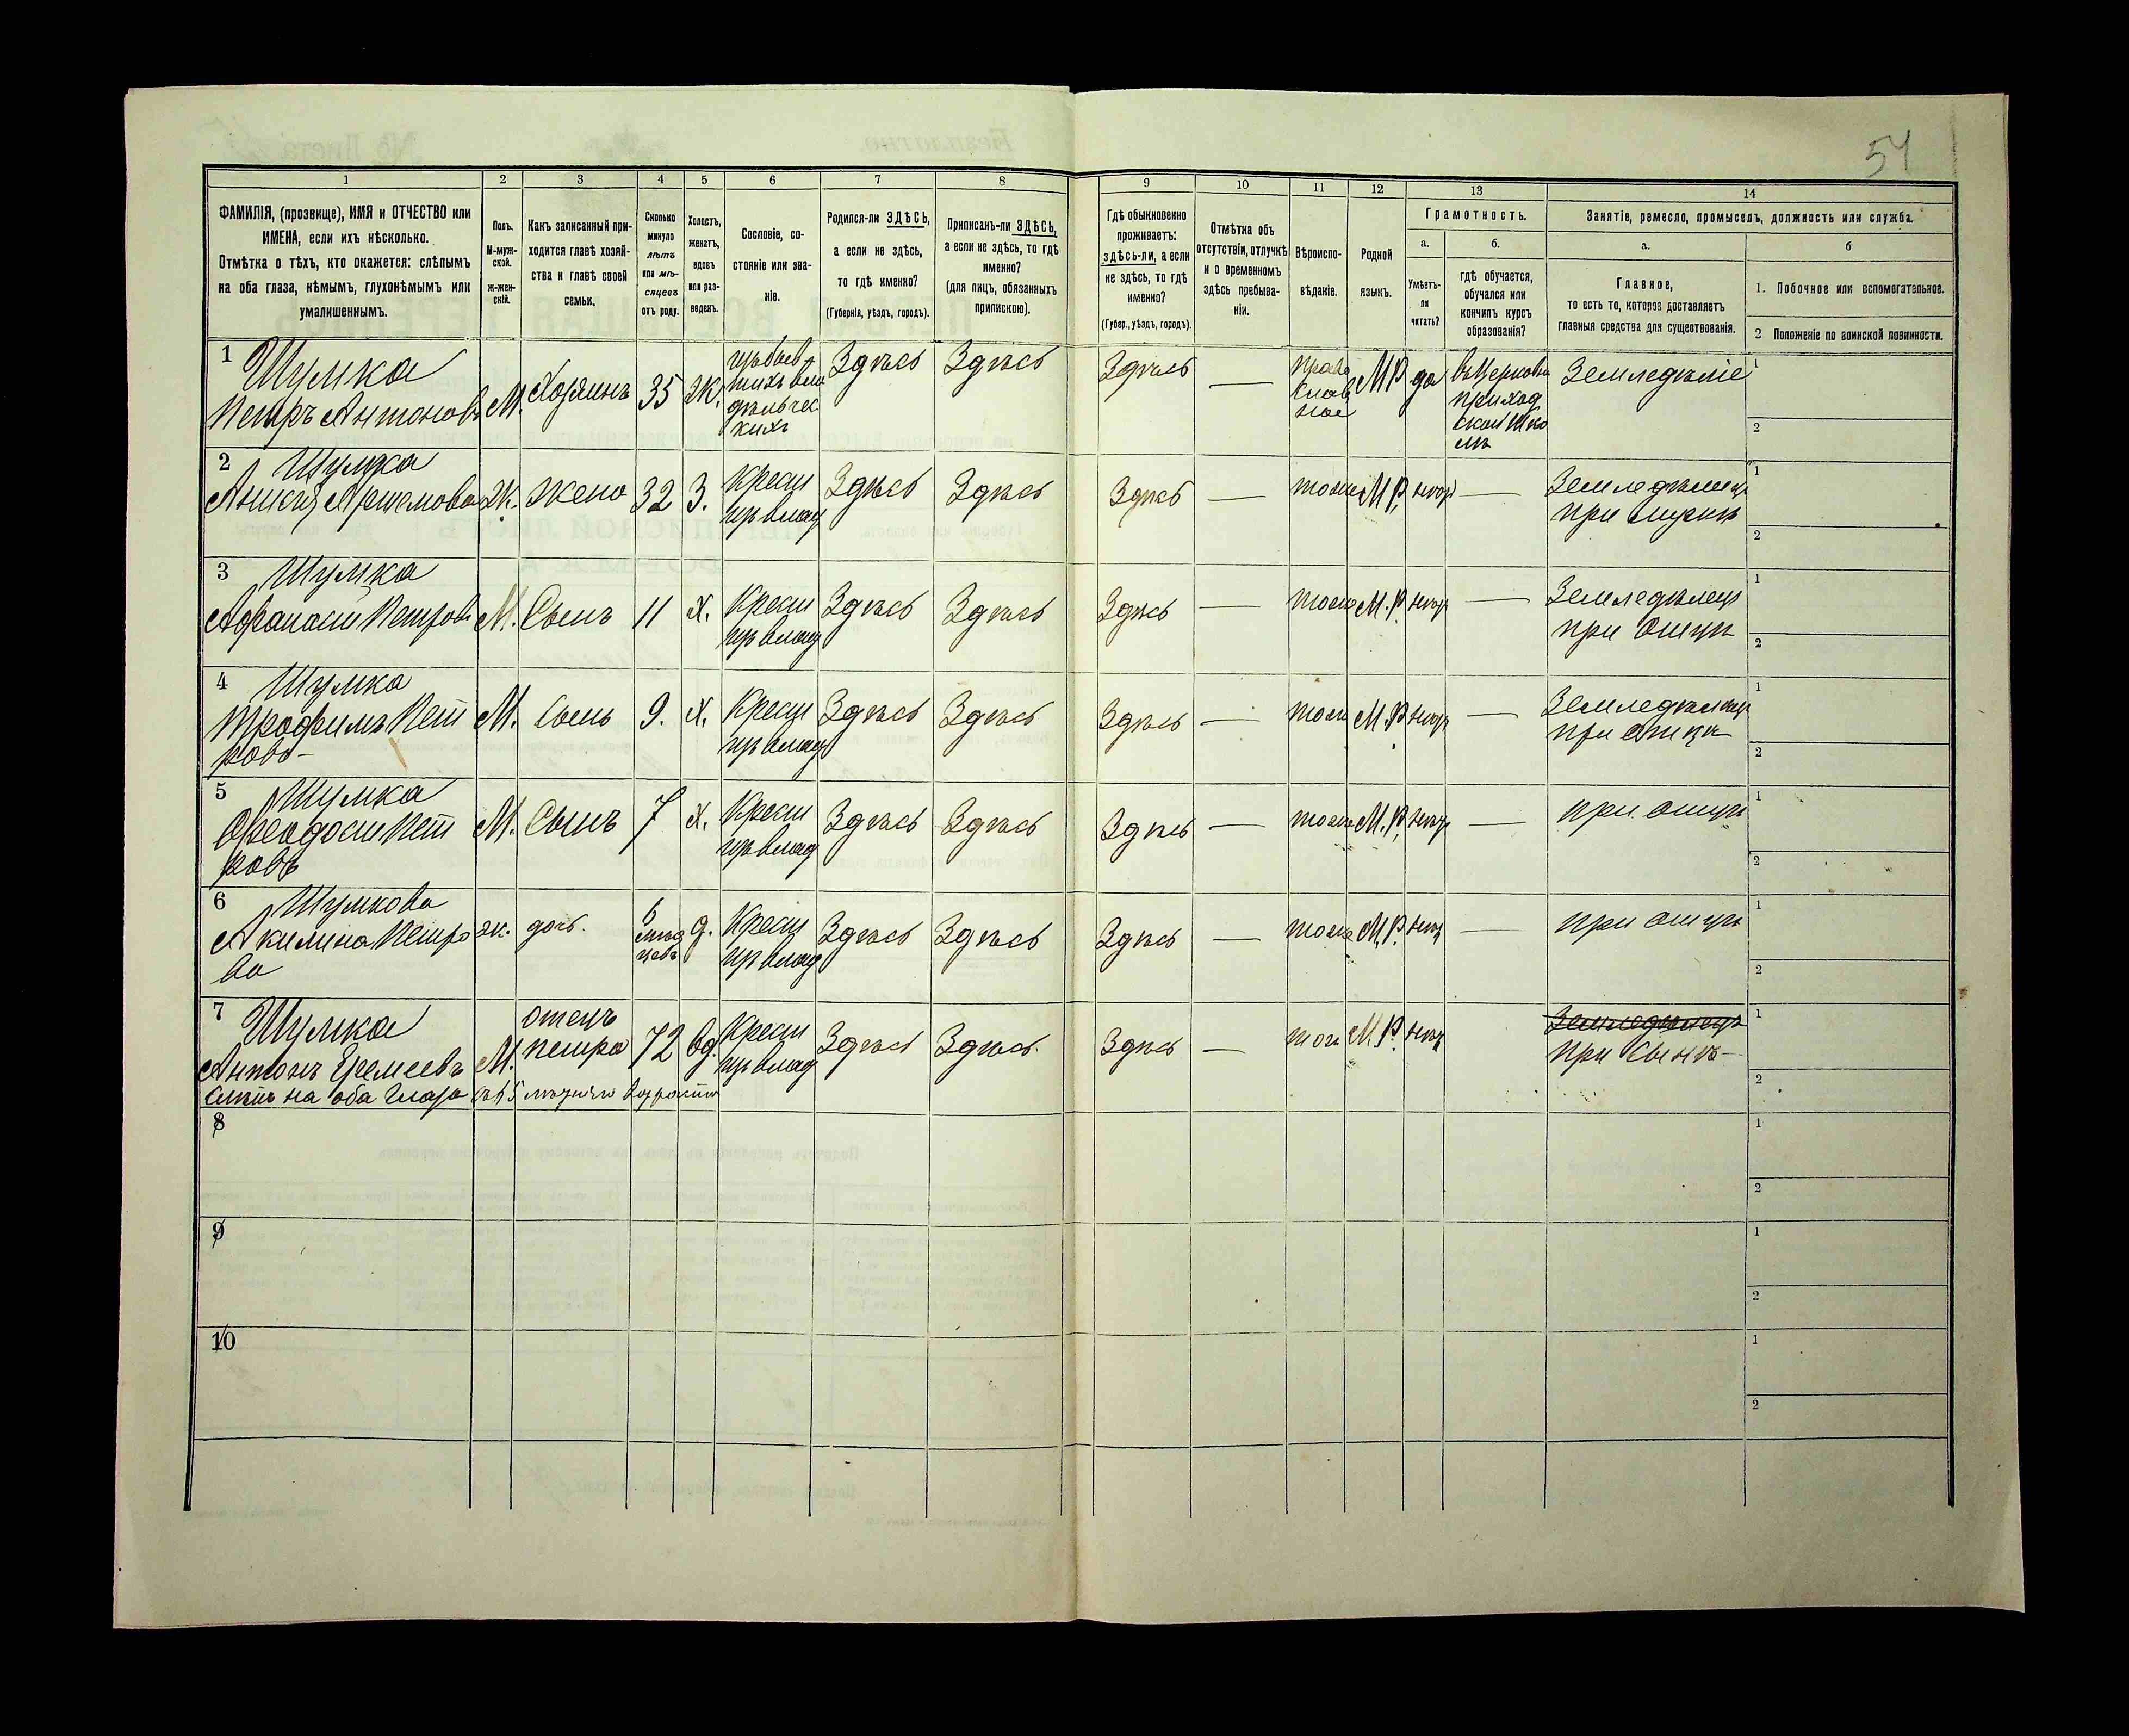 54
1 2 3 4 5 6 7 8 9 10 11 12 13 14
ФАМИЛІЯ, (прозвище), ИМЯ и ОТЧЕСТВО или
ИМЕНА, если ихъ нѣсколько.
Отмѣтка о тѣхъ, кто окажется: слѣпымъ
на оба глаза, нѣмымъ, глухонѣмымъ или
умалишеннымъ.
Полъ.
М-муж-
ской.
Ж-жен-
скій.
Какъ записанный при-
ходится главѣ хозяй-
ства и главѣ своей
семьи.
Сколько
минуло
лѣтъ
или мѣ-
сяцевъ
отъ роду.
Холостъ,
женатъ,
вдовъ
или раз-
веденъ.
Сословіе, со-
стояніе или зва-
ніе.
Родился-ли ЗДѢСЬ,
а если не здѣсь,
то гдѣ именно?
(Губернія, уѣздъ, городъ).
Приписанъ-ли ЗДѢСЬ,
а если не здѣсь, то гдѣ
именно?
(для лицъ, обязанныхъ
припискою).
Гдѣ обыкновенно
проживаетъ:
здѣсь-ли, а если
не здѣсь, то гдѣ
именно?
(Губер., уѣздъ, городъ).
Отмѣтка объ
отсутствіи, отлучкѣ
и о временномъ
здѣсь пребыва-
ніи.
Вѣроиспо-
вѣданіе.
Родной
языкъ.
Грамотность.
а.
Умѣетъ-
ли
читать?
б.
гдѣ обучается,
обучался или
кончилъ курсъ
образованія?
Занятіе, ремесло, промыселъ, должность или служба.
а.
Главное,
то есть то, которое доставляетъ
главныя средства для существованія.
б
1. Побочное или вспомогательное.
2 Положеніе по воинской повинности.
1 Шумка
Петръ Антоновъ
М. Хозяинъ 35 Ж.
Здѣсь Здѣсь Здѣсь —
Право
слав
ное
М.Р. да
въ Церковно
приход
ской шко
лѣ
Земледѣліе
1
2
2 Шумка
Артемова Ж. жена 32 З.
Крест
Здѣсь Здѣсь Здѣсь — тоже М.Р. —
при мужѣ
1
2
3 Шумка
Афанасій Петровъ М. Сынъ 11 Х.
Крест
Здѣсь Здѣсь Здѣсь — тоже М.Р. —
Земледѣлец
при отцѣ
1
2
4 Шумка
Трофимъ Пет
ровъ
М. Сынъ 9. Х.
Крест
Здѣсь Здѣсь Здѣсь — тоже М.Р. —
при отцѣ
1
2
5 Шумка
Феодосій Пет
ровъ
М. Сынъ 7 Х.
Крест
Здѣсь Здѣсь Здѣсь — тоже М.Р. —
при отцѣ
1
2
6 Шумкова
Акилина Петро
ва
ж. дочь. 6 д.
Крест
Здѣсь Здѣсь Здѣсь — тоже М.Р. —
при отцѣ
1
2
7 Шумка
Антонъ Еремеевъ
М.
отецъ
Петра
72 вд.
Крест
Здѣсь Здѣсь Здѣсь — тоже М.Р.
Земледѣлецъ
при сынѣ
слѣпъ на оба глаза
1
2
8
1
2
9
1
2
10
1
2